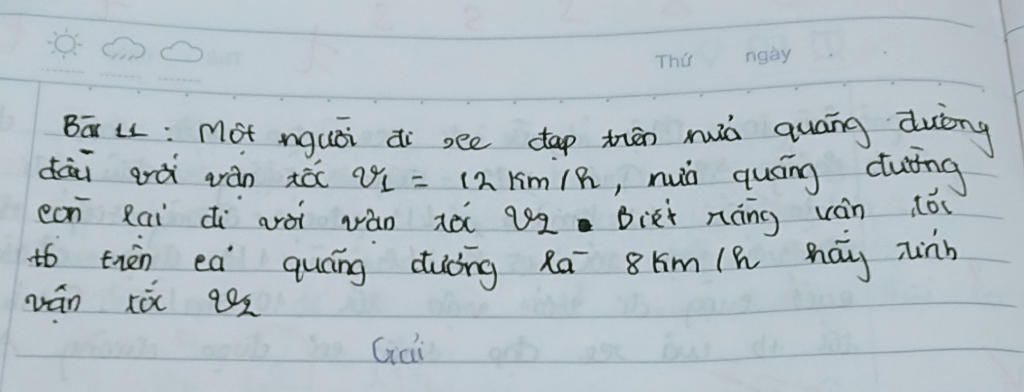 Thứ ngày
Bài 11 : Một người đi xe đạp trên nửa quãng đường
đầu với vận tốc v1 = 12 km/h, nửa quãng đường
còn lại đi với vận tốc v2. Biết rằng vận tốc
tb trên cả quãng đường là 8 km/h hãy tính
vận tốc v2
Giải